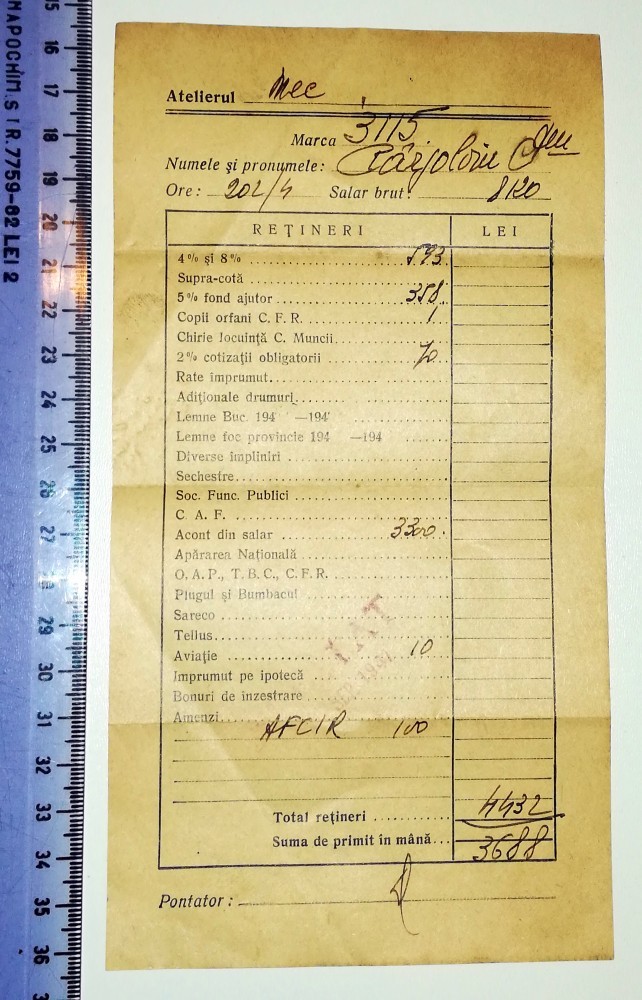 MAPOCHIM.S I R.7759-82 LEI 2
15
16
17
18
19
20
21
22
23
24
25
26
27
28
29
30
31
32
33
34
35
36
Atelierul Mec
Marca 3115
Numele și pronumele:
Ore: 202/4 Salar brut: 8120
REȚINERI LEI
4% și 8% 593
Supra-cotă
5% fond ajutor 358
Copii orfani C. F. R. 1
Chirie locuință C. Muncii
2% cotizații obligatorii 70
Rate împrumut
Adiționale drumuri
Lemne Buc. 194 —194
Lemne foc provincie 194 —194
Diverse împliniri
Sechestre
Soc. Func. Publici
C. A. F.
Acont din salar 3300
Apărarea Națională
O. A. P., T. B. C., C. F. R.
Plugul și Bumbacul
Sareco
Tellus
Aviație 10
Imprumut pe ipotecă
Bonuri de înzestrare
Amenzi
AFCIR 100
Total rețineri 4432
Suma de primit în mână 3688
Pontator: